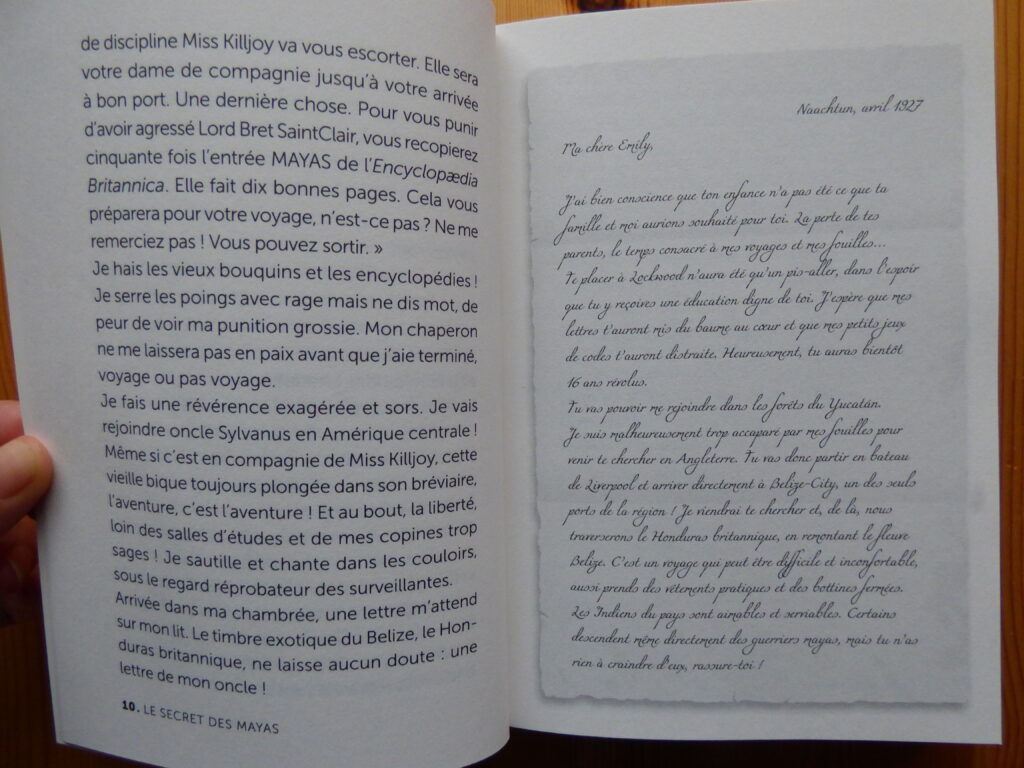 de discipline Miss Killjoy va vous escorter. Elle sera
votre dame de compagnie jusqu'à votre arrivée
à bon port. Une dernière chose. Pour vous punir
d'avoir agressé Lord Bret SaintClair, vous recopierez
cinquante fois l'entrée MAYAS de l'Encyclopædia
Britannica. Elle fait dix bonnes pages. Cela vous
préparera pour votre voyage, n'est-ce pas ? Ne me
remerciez pas ! Vous pouvez sortir. »
Je hais les vieux bouquins et les encyclopédies !
Je serre les poings avec rage mais ne dis mot, de
peur de voir ma punition grossie. Mon chaperon
ne me laissera pas en paix avant que j'aie terminé,
voyage ou pas voyage.
Je fais une révérence exagérée et sors. Je vais
rejoindre oncle Sylvanus en Amérique centrale !
Même si c'est en compagnie de Miss Killjoy, cette
vieille bique toujours plongée dans son bréviaire,
l'aventure, c'est l'aventure ! Et au bout, la liberté,
loin des salles d'études et de mes copines trop
sages ! Je sautille et chante dans les couloirs,
sous le regard réprobateur des surveillantes.
Arrivée dans ma chambrée, une lettre m'attend
sur mon lit. Le timbre exotique du Belize, le Hon-
duras britannique, ne laisse aucun doute : une
lettre de mon oncle !
10. LE SECRET DES MAYAS
Naachtun, avril 1927
Ma chère Emily,
J'ai bien conscience que ton enfance n'a pas été ce que ta
famille et moi aurions souhaité pour toi. La perte de tes
parents, le temps consacré à mes voyages et mes fouilles...
Te placer à Lockwood n'aura été qu'un pis-aller, dans l'espoir
que tu y reçoives une éducation digne de toi. J'espère que mes
lettres t'auront mis du baume au cœur et que mes petits jeux
de codes t'auront distraite. Heureusement, tu auras bientôt
16 ans révolus.
Tu vas pouvoir me rejoindre dans les forêts du Yucatán.
Je suis malheureusement trop accaparé par mes fouilles pour
venir te chercher en Angleterre. Tu vas donc partir en bateau
de Liverpool et arriver directement à Belize-City, un des seuls
ports de la région ! Je viendrai te chercher et, de là, nous
traverserons le Honduras britannique, en remontant le fleuve
Belize. C'est un voyage qui peut être difficile et inconfortable,
aussi prends des vêtements pratiques et des bottines fermées.
Les Indiens du pays sont aimables et serviables. Certains
descendent même directement des guerriers mayas, mais tu n'as
rien à craindre d'eux, rassure-toi !